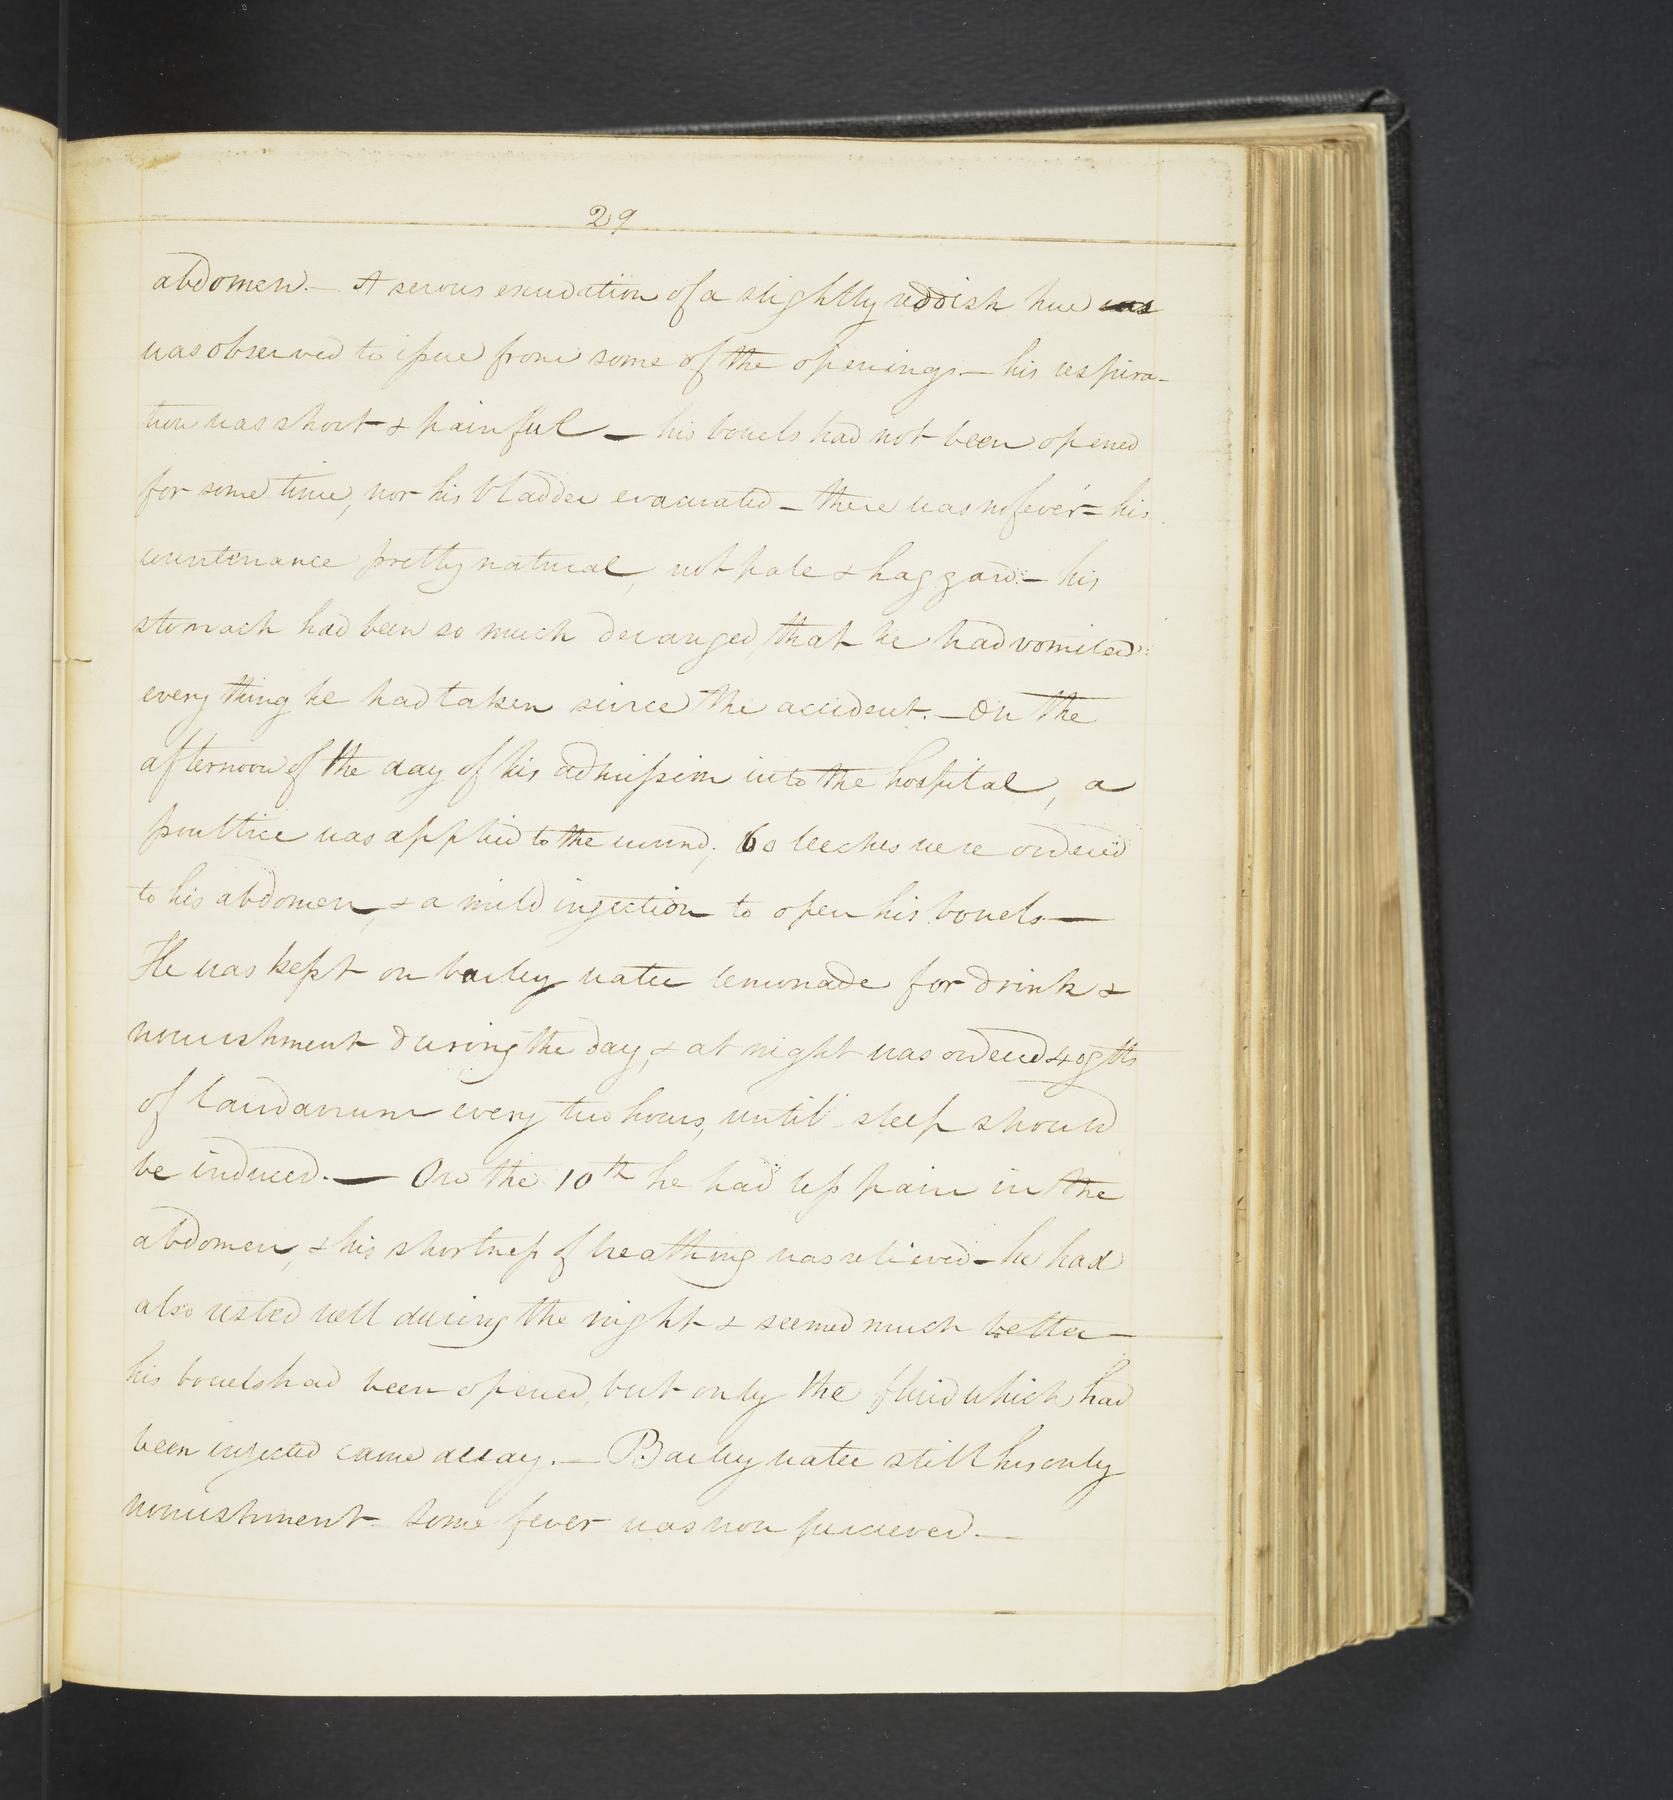 29
abdomen. — A serous exudation of a slightly reddish hue was
was observed to issue from some of the openings — his respira-
tion was short & painful — his bowels had not been opened
for some time, nor his bladder evacuated — there was no fever = his
countenance pretty natural, not pale & haggard. — his
stomach had been so much deranged, that he had vomited
every thing he had taken since the accident. — On the
afternoon of the day of his admission into the hospital, a
poultice was applied to the wound; 60 leeches were ordered
to his abdomen, & a mild injection to open his bowels —
He was kept on barley water lemonade for drink &
nourishment during the day, & at night was ordered 40 gtts
of laudanum every two hours, until sleep should
be induced. — On the 10th he had less pain in the
abdomen, & his shortness of breathing was relieved — he had
also rested well during the night & seemed much better —
his bowels had been opened, but only the fluid which had
been injected came away. — Barley water still his only
nourishment. Some fever was now percieved. —